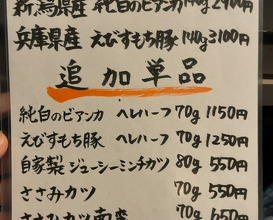 新潟県産 純白のビアンカ 140g 2900円
兵庫県産 えびすもち豚 140g 3100円
追加単品
純白のビアンカ ヘレハーフ 70g 1150円
えびすもち豚 ヘレハーフ 70g 1250円
自家製ジューシーミンチカツ 80g 550円
ささみカツ 70g 550円
ささみカツ南蛮 70g 650円